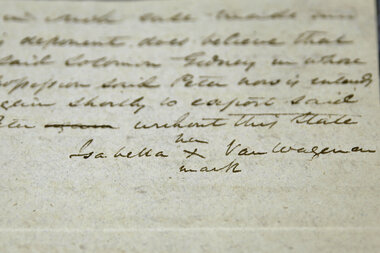 in such case made and
deponent does believe that
said Solomon Gidney in whose
possession said Peter now is intends
again shortly to export said
Peter again without this State
Isabella her X Van Wagenen
mark